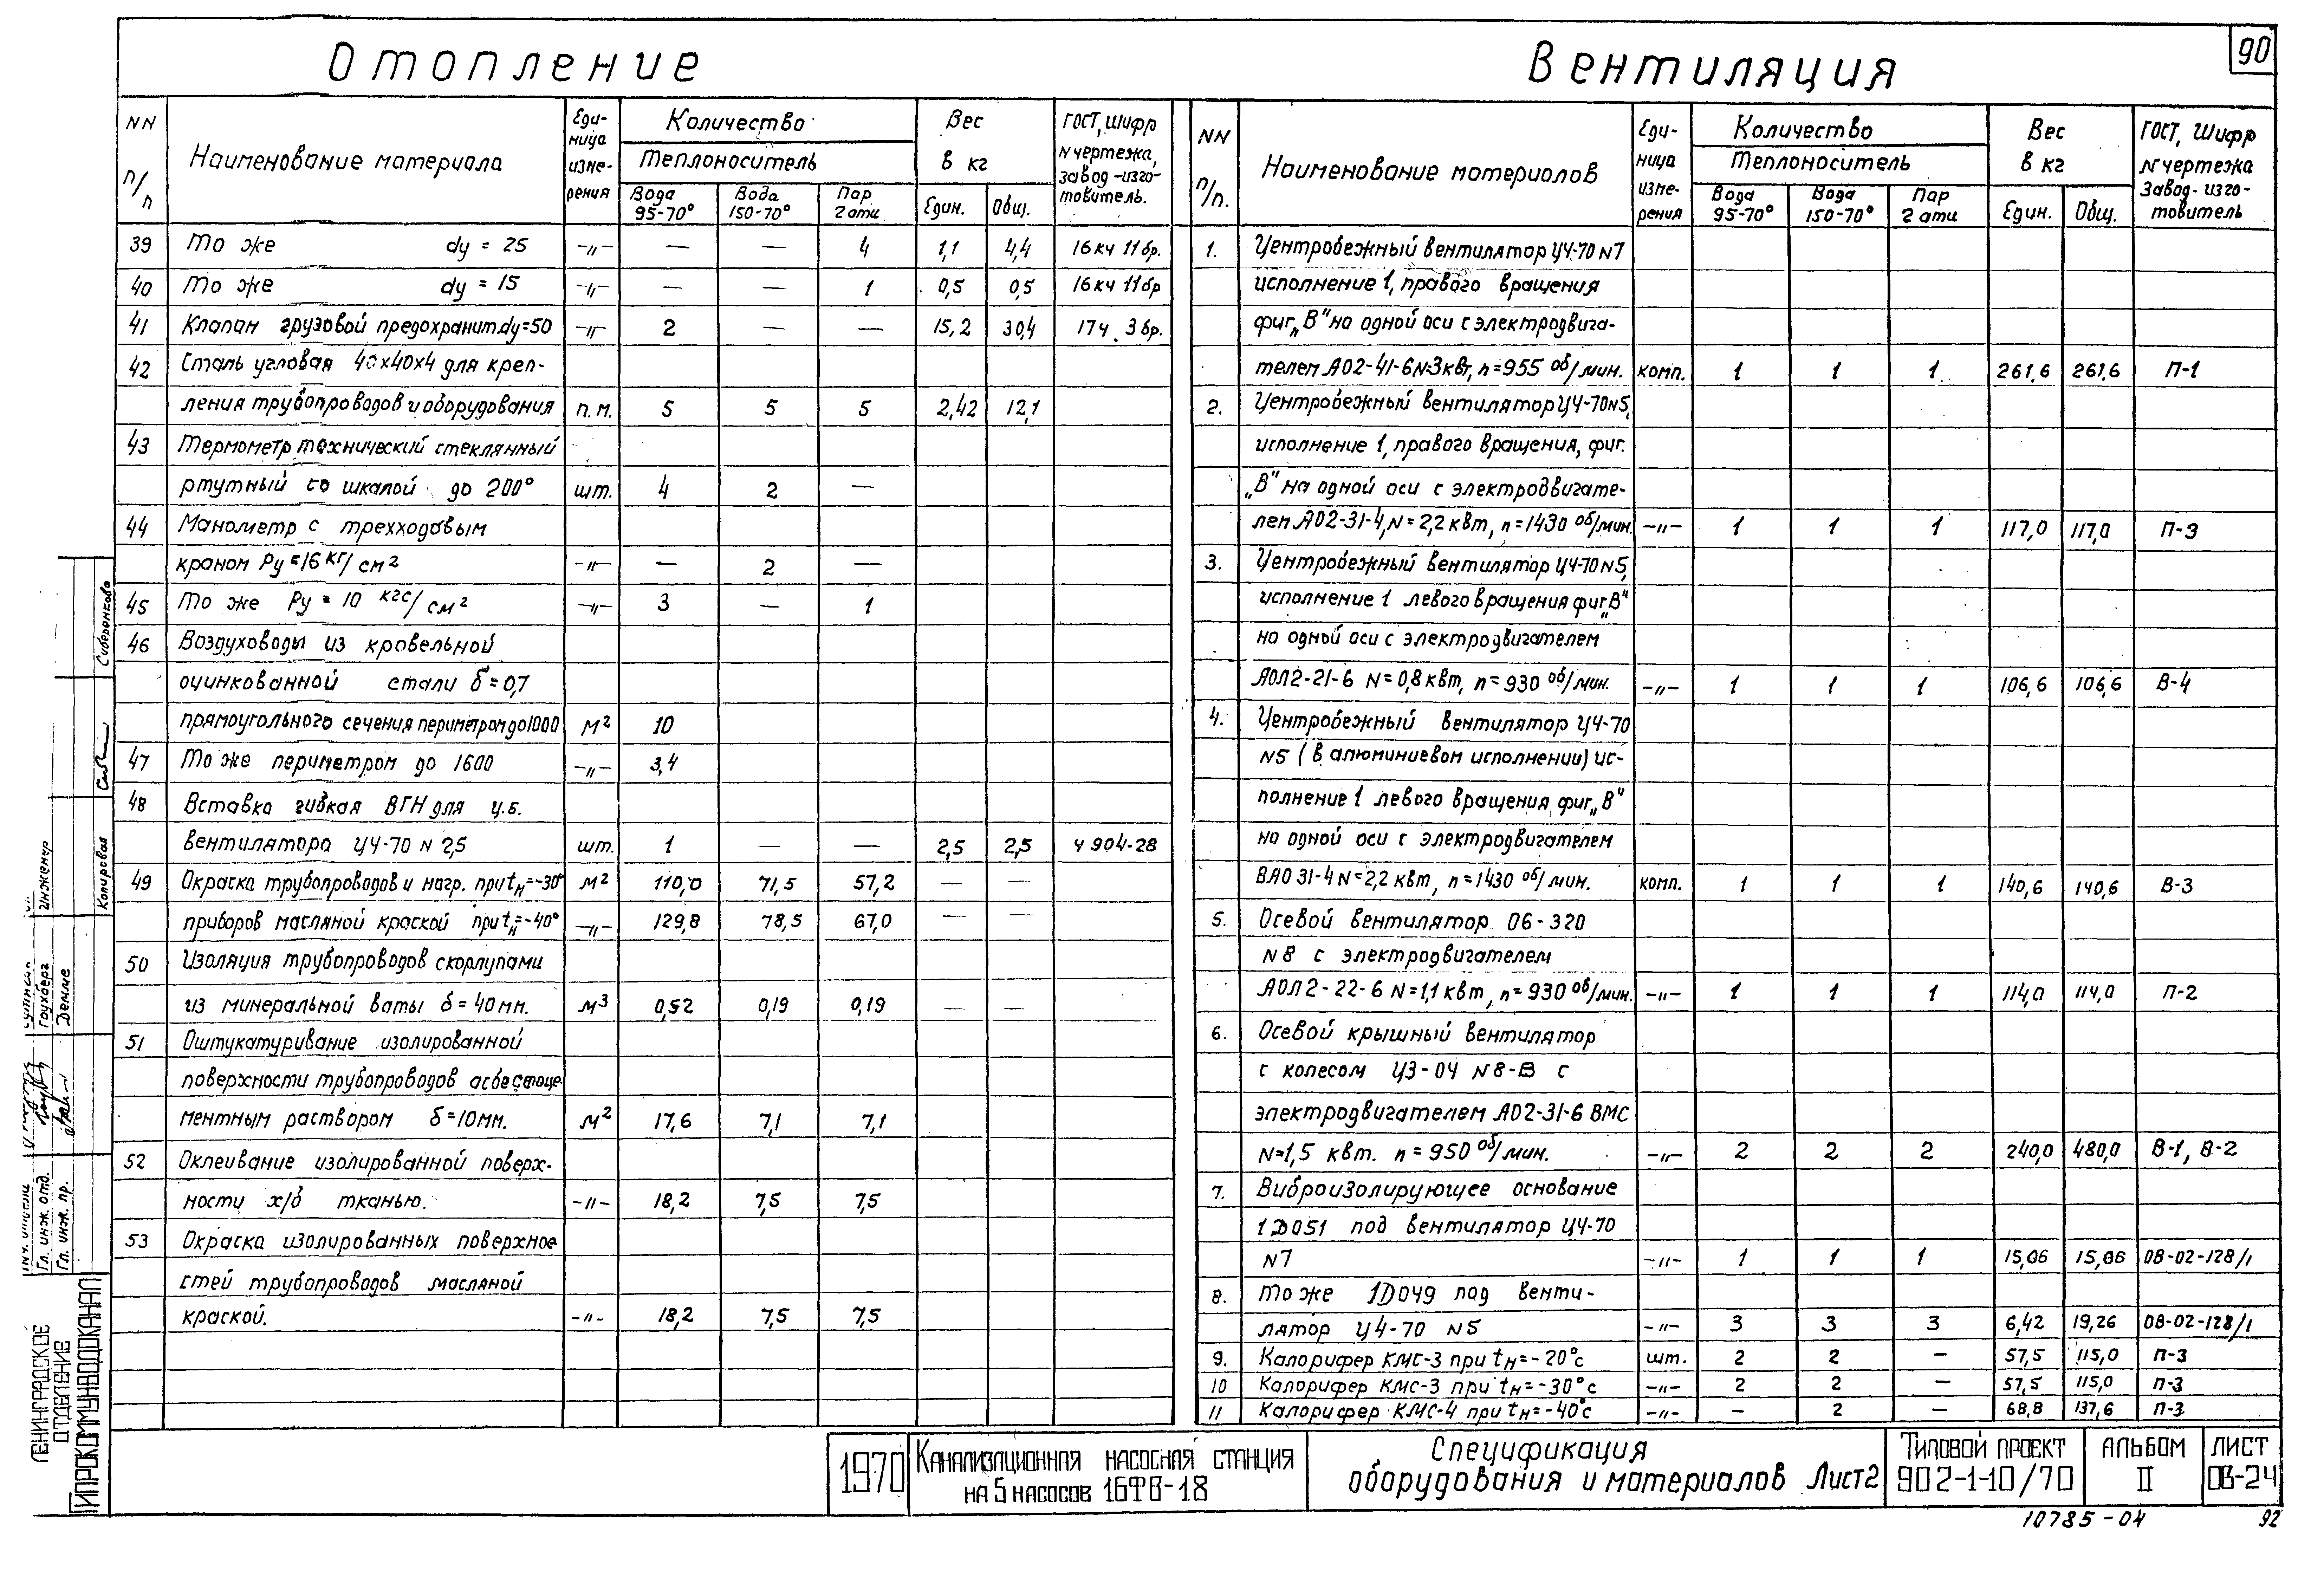 90
Отопление
NN п/п Наименование материала Единица измерения Количество Теплоноситель Вода 95-70° Вода 150-70° Пар 2 ати Вес в кг Един. Общ. ГОСТ, шифр N чертежа, завод-изготовитель.
39 То же dy = 25 -"- — — 4 1,1 4,4 16кч 11бр.
40 То же dy = 15 -"- — — 1 0,5 0,5 16кч 11бр
41 Клапан грузовой предохранит.dy=50 -"- 2 — — 15,2 30,4 17ч 3бр.
42 Сталь угловая 40х40х4 для креп-
ления трубопроводов и оборудования п.м. 5 5 5 2,42 12,1
43 Термометр технический стеклянный
ртутный со шкалой до 200° шт. 4 2 —
44 Манометр с трехходовым
краном Ру=16 кг/см² -"- — 2 —
45 То же Ру = 10 кгс/см² -"- 3 — 1
46 Воздуховоды из кровельной
оцинкованной стали δ=0,7
прямоугольного сечения периметром до 1000 м² 10
47 То же периметром до 1600 -"- 3,4
48 Вставка гибкая ВГН для ц.б.
вентилятора Ц4-70 N 2,5 шт. 1 — — 2,5 2,5 4 904-28
49 Окраска трубопроводов и нагр. при tн=-30° м² 110,0 71,5 57,2 — —
приборов масляной краской при tн=-40° -"- 129,8 78,5 67,0 — —
50 Изоляция трубопроводов скорлупами
из минеральной ваты δ=40мм. м³ 0,52 0,19 0,19 — —
51 Оштукатуривание изолированной
поверхности трубопроводов асбестоце-
ментным раствором δ=10мм. м² 17,6 7,1 7,1
52 Оклеивание изолированной поверх-
ности х/б тканью. -"- 18,2 7,5 7,5
53 Окраска изолированных поверхно-
стей трубопроводов масляной
краской. -"- 18,2 7,5 7,5
Вентиляция
NN п/п. Наименование материалов Единица измерения Количество Теплоноситель Вода 95-70° Вода 150-70° Пар 2 ати Вес в кг Един. Общ. ГОСТ, шифр N чертежа завод-изготовитель
1. Центробежный вентилятор Ц4-70 N7
исполнение 1, правого вращения
фиг„В" на одной оси с электродвига-
телем АО2-41-6 N-3квт, n=955 об/мин. комп. 1 1 1 261,6 261,6 П-1
2. Центробежный вентилятор Ц4-70 N5,
исполнение 1, правого вращения, фиг.
„В" на одной оси с электродвигате-
лем АО2-31-4, N=2,2 квт, n=1430 об/мин. -"- 1 1 1 117,0 117,0 П-3
3. Центробежный вентилятор Ц4-70 N5,
исполнение 1 левого вращения фиг„В"
на одной оси с электродвигателем
АОЛ2-21-6 N=0,8 квт, n=930 об/мин. -"- 1 1 1 106,6 106,6 В-4
4. Центробежный вентилятор Ц4-70
N5 (в алюминиевом исполнении) ис-
полнение 1 левого вращения фиг„В"
на одной оси с электродвигателем
ВАО 31-4 N=2,2 квт, n=1430 об/мин. комп. 1 1 1 140,6 140,6 В-3
5. Осевой вентилятор 06-320
N8 с электродвигателем
АОЛ2-22-6 N=1,1 квт, n=930 об/мин. -"- 1 1 1 114,0 114,0 П-2
6. Осевой крышный вентилятор
с колесом Ц3-04 N8-В с
электродвигателем АО2-31-6 ВМС
N=1,5 квт. n=950 об/мин. -"- 2 2 2 240,0 480,0 В-1, В-2
7. Виброизолирующее основание
1D051 под вентилятор Ц4-70
N7 -"- 1 1 1 15,06 15,06 ОВ-02-128/1
8. То же 1D049 под венти-
лятор Ц4-70 N5 -"- 3 3 3 6,42 19,26 ОВ-02-128/1
9. Калорифер КМС-3 при tн=-20°с шт. 2 2 — 57,5 115,0 П-3
10 Калорифер КМС-3 при tн=-30°с -"- 2 2 — 57,5 115,0 П-3
11 Калорифер КМС-4 при tн=-40°с -"- — 2 — 68,8 137,6 П-3
Инженер
Копировал
Гл. инж. отд.
Гл. инж. пр.
Гаухберг
Демме
ЛЕНИНГРАДСКОЕ
ОТДЕЛЕНИЕ
ГИПРОКОММУНВОДОКАНАЛ
1970
Канализационная насосная станция
на 5 насосов 16ФВ-18
Спецификация
оборудования и материалов Лист 2
Типовой проект
902-1-10/70
Альбом
II
Лист
ОВ-24
10785-04
92